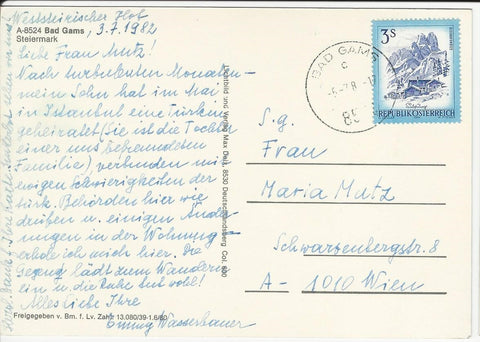 Weststeirischer Hof
A-8524 Bad Gams, 3.7.1982
Steiermark
Liebe Frau Mutz!
Nach turbulenten Monaten –
mein Sohn hat im Mai
in Istanbul eine Türkin
geheiratet (sie ist die Tochter
einer uns befreundeten
Familie) verbunden mit
ewigen Schwierigkeiten der
türk. Behörden hier wie
drüben u. einigen Änder-
ungen in der Wohnung –
erhole ich mich hier. Die
Gegend lädt zum Wandern
ein u. die Ruhe tut wohl!
Alles Liebe Ihre
Emmy Wasserbauer
Freigegeben v. Bm. f. Lv. Zahl 13.080/39-1.6/80
Lichtbild und Verlag Max 8530 Deutschlandsberg
BAD GAMS
c
3S
REPUBLIK ÖSTERREICH
S.g.
Frau
Maria Mutz
Schwarzenbergstr. 8
A- 1010 Wien